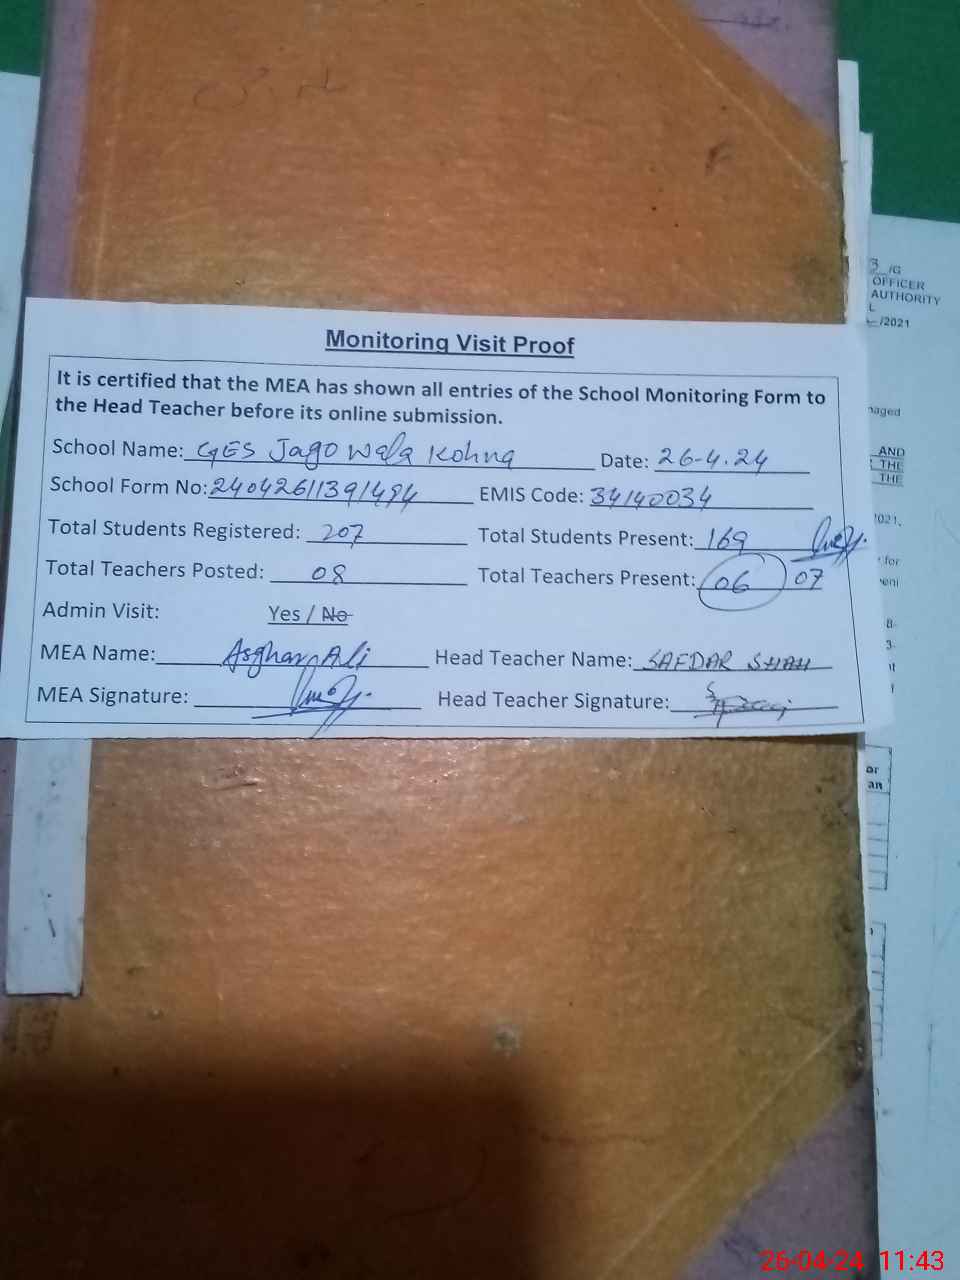 Monitoring Visit Proof
It is certified that the MEA has shown all entries of the School Monitoring Form to
the Head Teacher before its online submission.
School Name: GES Jago wala Kohna Date: 26-4.24
School Form No: 24042611391494 EMIS Code: 34140034
Total Students Registered: 207 Total Students Present: 169
Total Teachers Posted: 08 Total Teachers Present: 06 07
Admin Visit: Yes / No
MEA Name: Asghar Ali Head Teacher Name: SAFDAR SHAH
MEA Signature: Head Teacher Signature:
3 /G
OFFICER
AUTHORITY
L
/2021
naged
AND
THE
THE
2021,
for
8-
3-
or
an
26-04-24 11:43